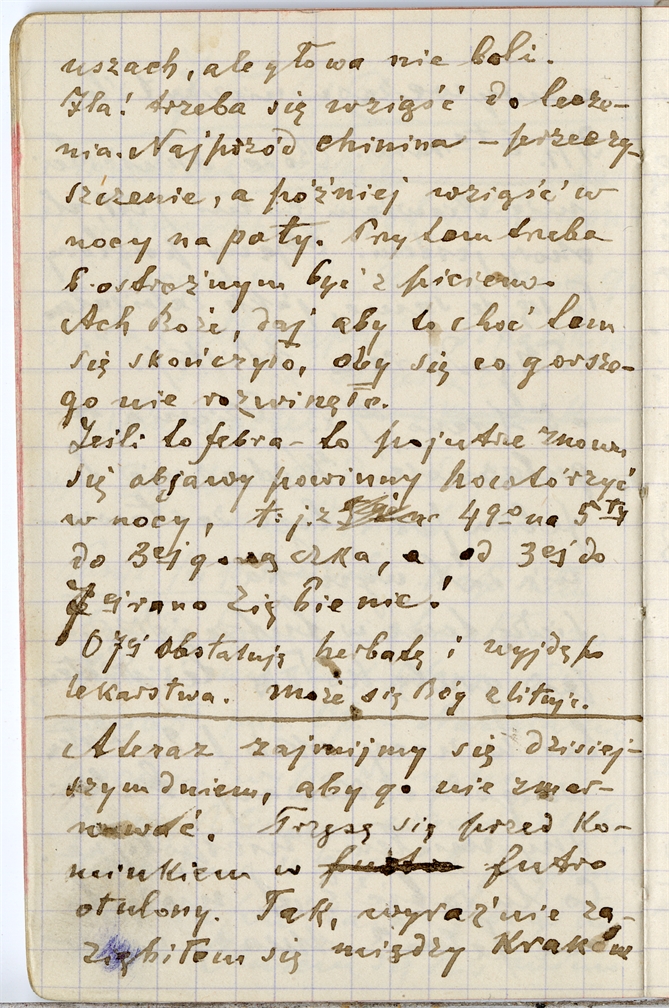 uszach, ale głowa nie boli.
Zła! trzeba się wziąść do lecze-
nia. Najprzód chinina – przeczy-
szczenie, a później wziąść w
nocy na poty. Przy tem trzeba
b. ostrożnym być z piciem.
Ach Boże, daj aby to choć tem
się skończyło, oby się co gorsze-
go nie rozwinęło.
Jeśli to febra – to pojutrze znowu
się objawy powinny powtórzyć
w nocy, t. j. z 4go na 5ty
do 3ej gorączka, a od 3ej do
7ej rano Zięбienie!
O 7ej obstaluję herbatę i wyjdę po
lekarstwa. Może się Bóg zlituje.
A teraz zajmijmy się dzisiej-
szym dniem, aby go nie zmar-
nować. Trzęsę się przed Ko-
minkiem w futro
otulony. Tak, wyraźnie za-
ziębiłem się między Kraków